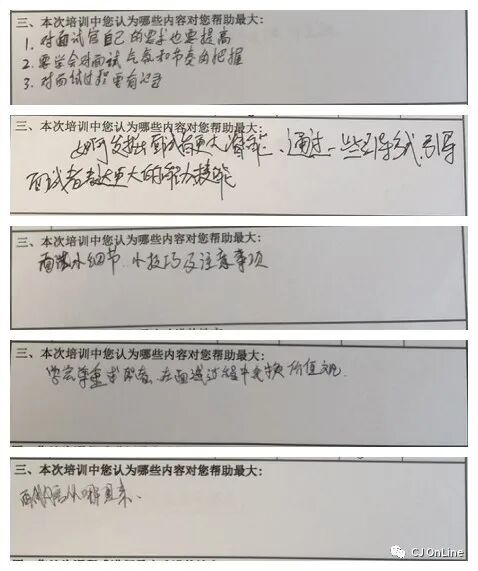 三、本次培训中您认为哪些内容对您帮助最大:
1. 对面试官自己的要求也要提高
2. 要学会对面试气氛和节奏的把握
3. 对面试过程要有记录
三、本次培训中您认为哪些内容对您帮助最大:
如何发掘面试者更大潜能、通过一些引导式,引导
面试者表达更大的能力技能
三、本次培训中您认为哪些内容对您帮助最大:
面试小细节、小技巧及注意事项
三、本次培训中您认为哪些内容对您帮助最大:
学会尊重求职者、在面试过程中
三、本次培训中您认为哪些内容对您帮助最大:
CJOnLine